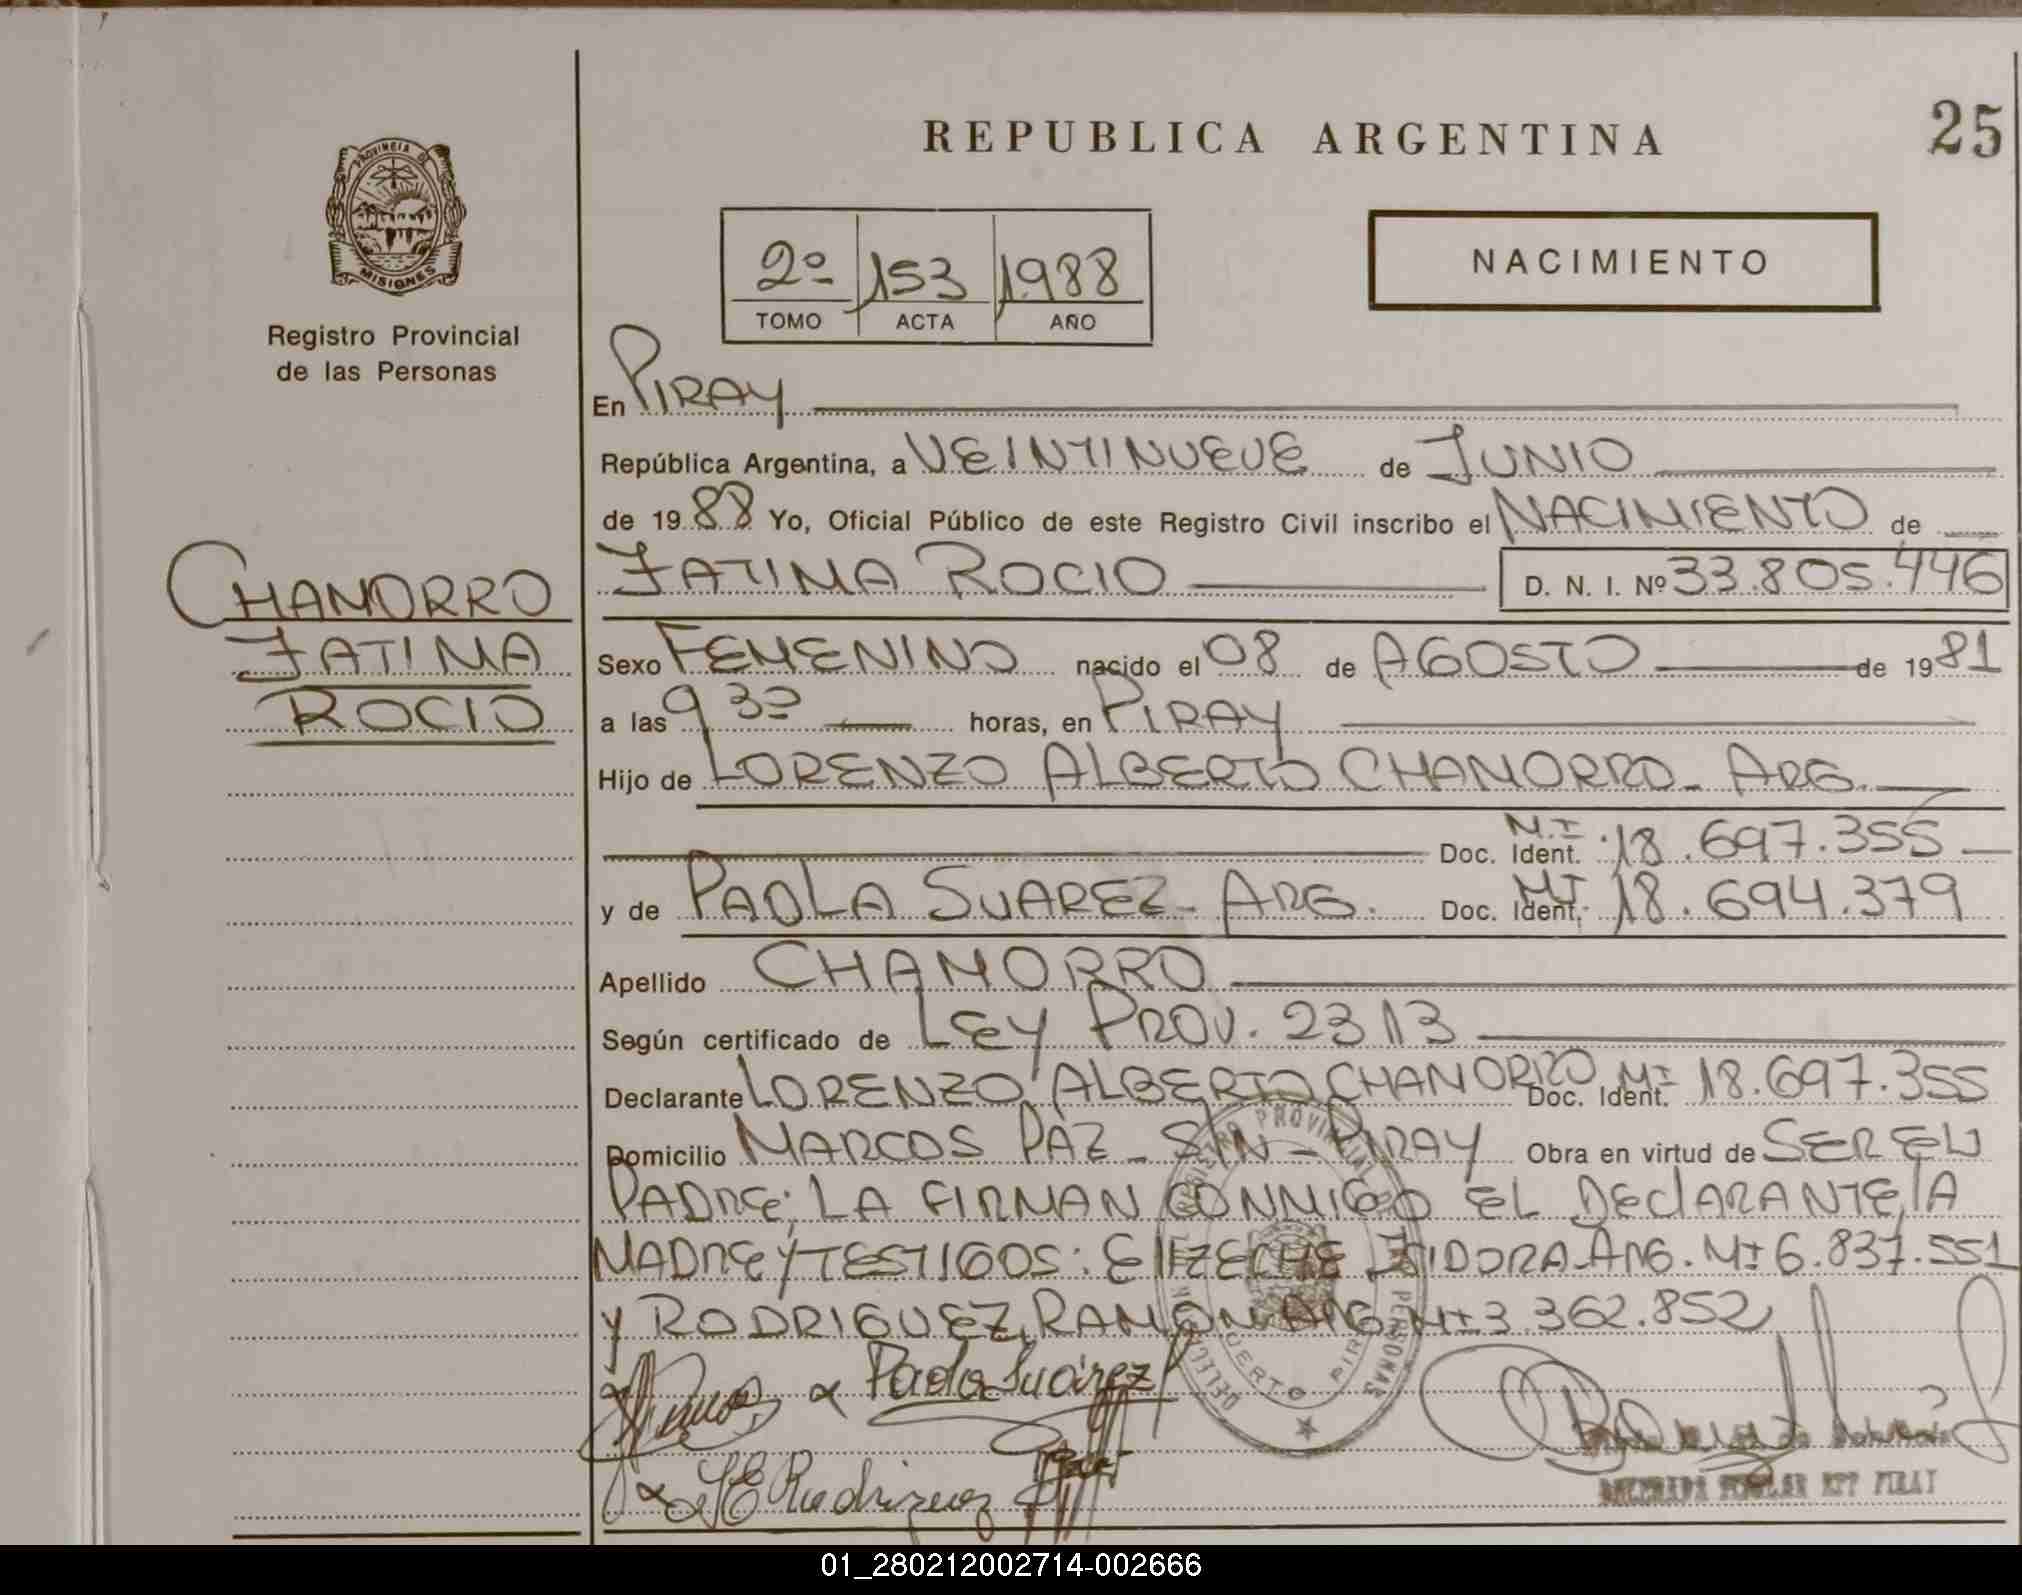 REPUBLICA ARGENTINA
25
PROVINCIA DE
MISIONES
Registro Provincial
de las Personas
2º 153 1988
TOMO ACTA AÑO
NACIMIENTO
CHAMORRO
FATIMA
ROCIO
En PIRAY
República Argentina, a VEINTINUEVE de JUNIO
de 1988 Yo, Oficial Público de este Registro Civil inscribo el NACIMIENTO de
FATIMA ROCIO D. N. I. Nº 33.805.446
Sexo FEMENINO nacido el 08 de AGOSTO de 1981
a las 9 30 horas, en PIRAY
Hijo de LORENZO ALBERTO CHAMORRO - ARG.
Doc. Ident. M.I. 18.697.355
y de PAOLA SUAREZ - ARG. Doc. Ident. MI 18.694.379
Apellido CHAMORRO
Según certificado de LEY PROV. 2313
Declarante LORENZO ALBERTO CHAMORRO Doc. Ident. MI 18.697.355
Domicilio MARCOS PAZ - S/N - PIRAY Obra en virtud de SER EL
PADRE; LA FIRMAN CONMIGO EL DECLARANTE, LA
MADRE Y TESTIGOS: ELIZECHE ISIDORA ARG. MI 6.837.551
Y RODRIGUEZ, RAMON ARG MI 3.362.852
Paola Suárez
Rodriguez
PIRAY
01_280212002714-002666